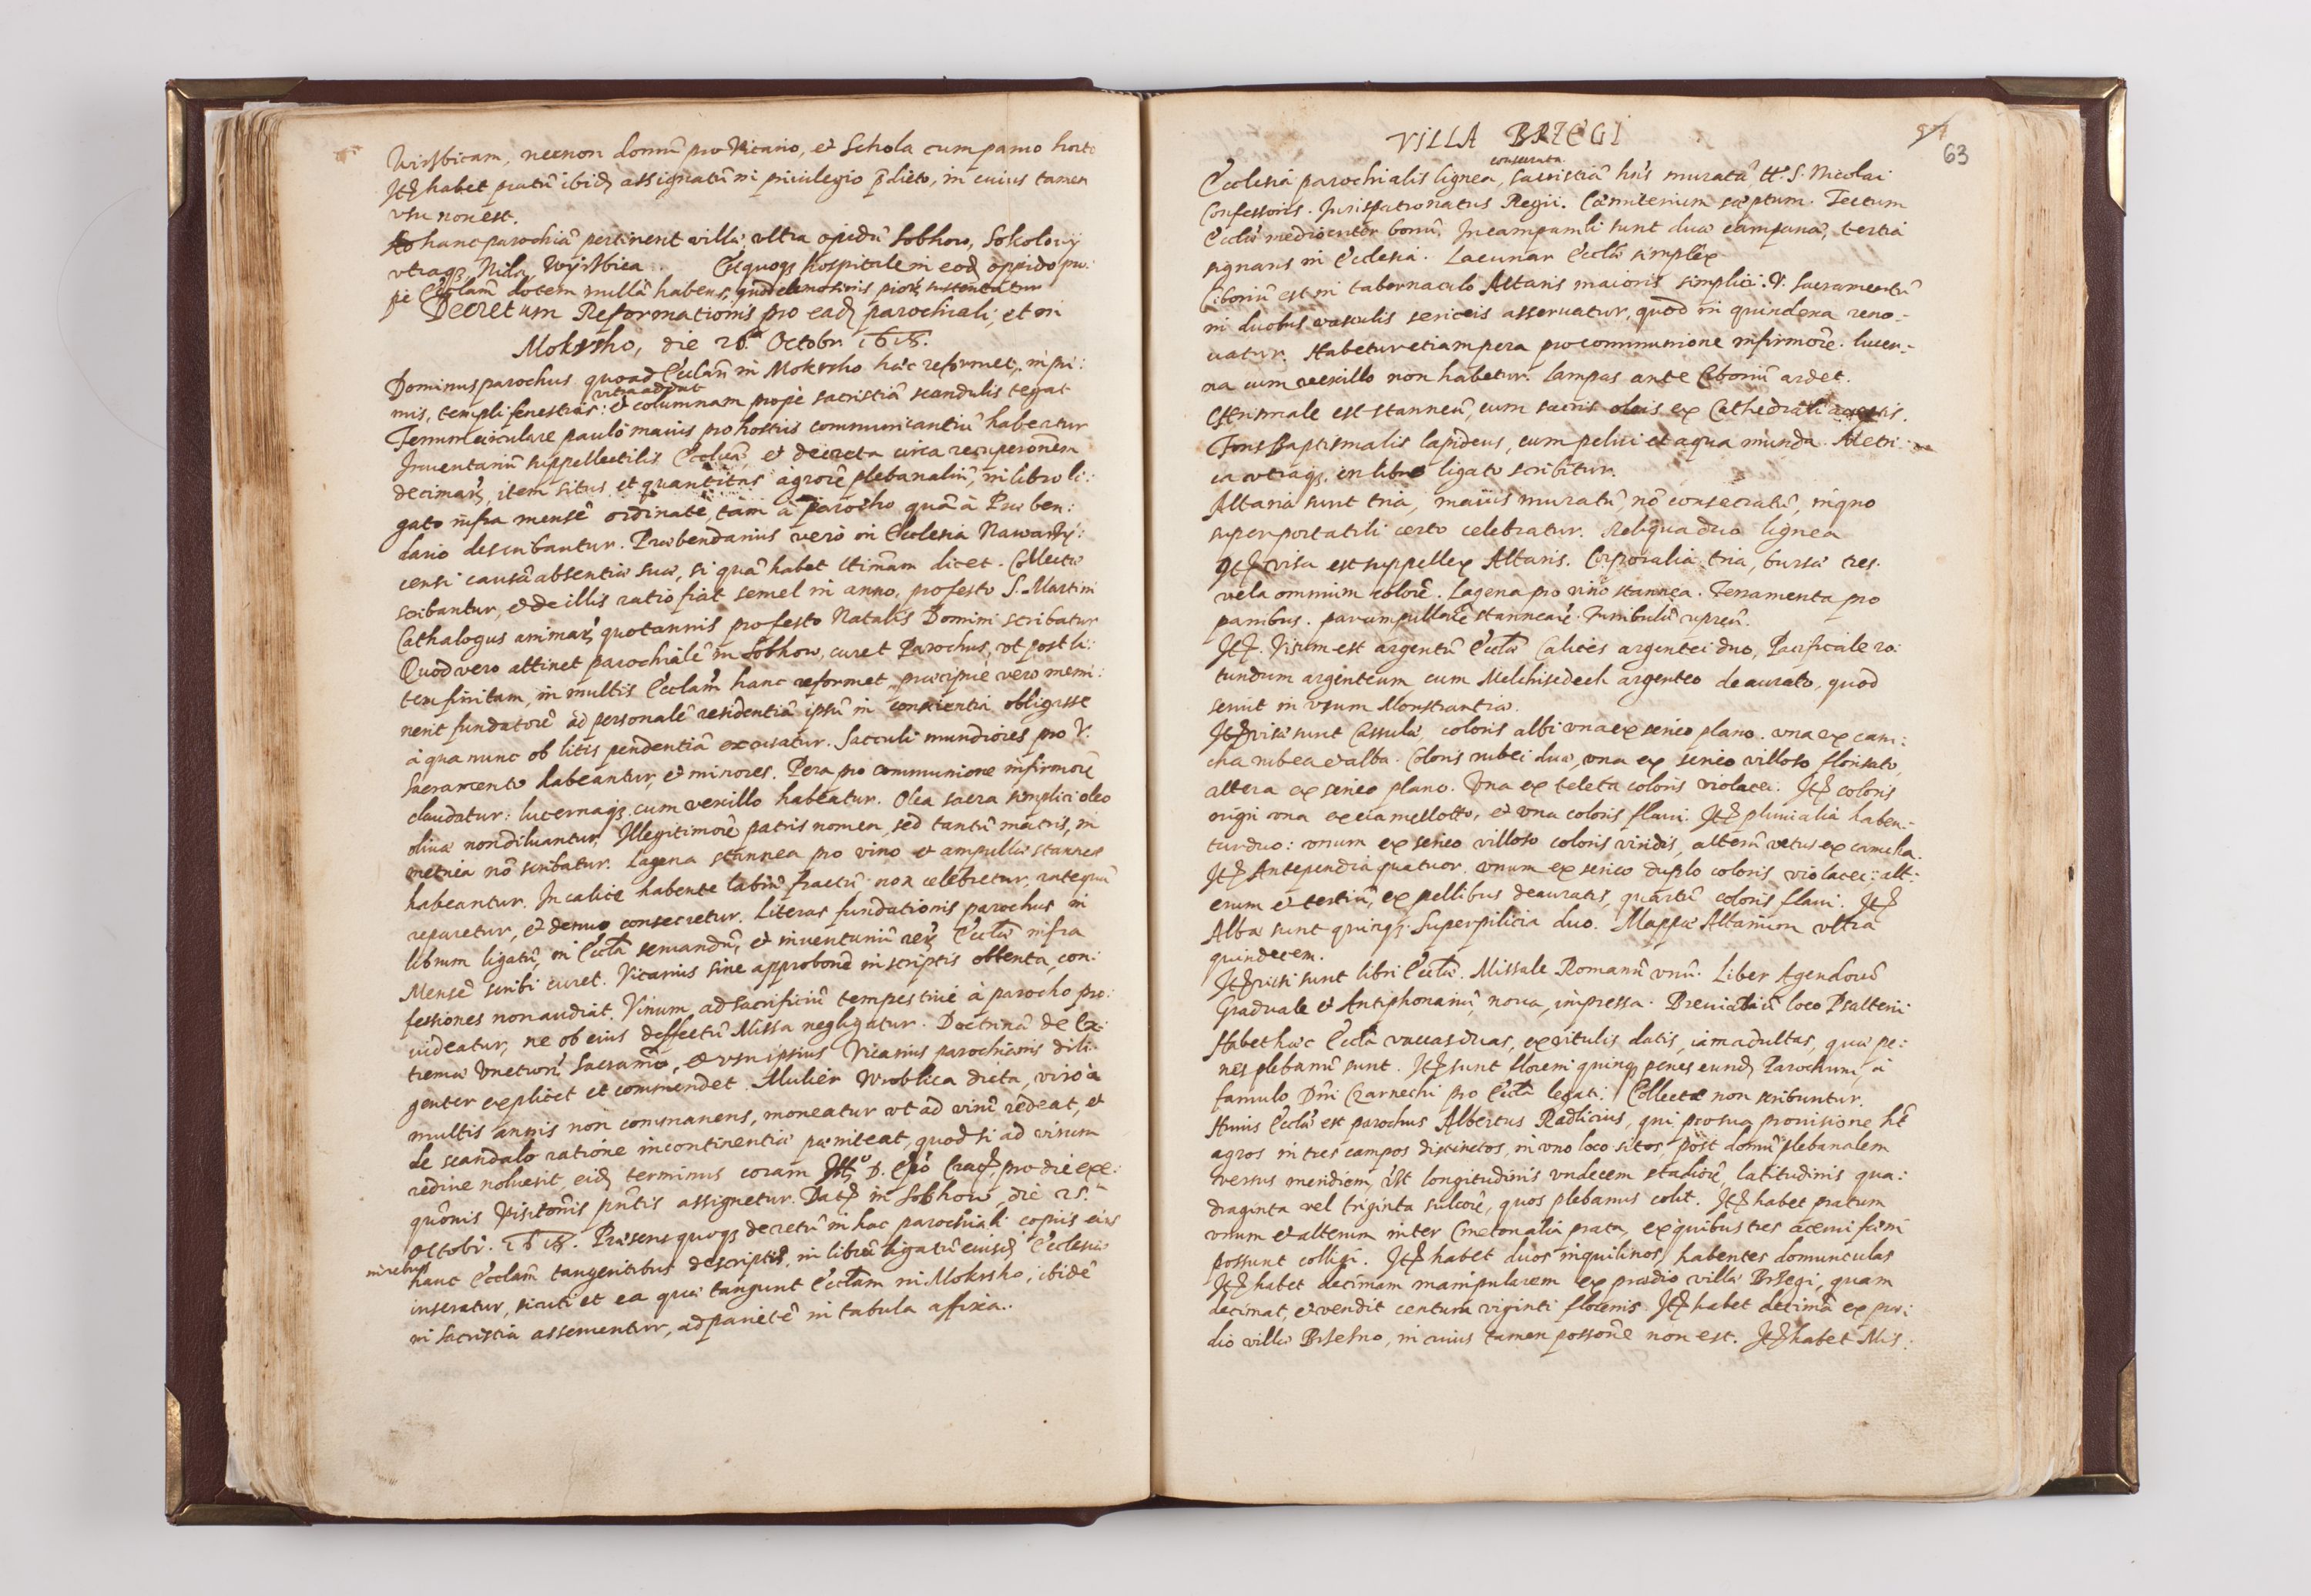 Wirsbicam, necnon domũ pro Vicario, et Schola cum paruo horto
Itẽ habet pratũ ibid. assignatũ in priuilegio p̃dicto, in cuius tamen
vsu non est.
hanc parochiã pertinent villæ, vltra opidũ Sobkow, Sokolovy
vtraq3, Nida, Wyrsbica. Est quoq3 hospitale in eod. oppido pro:
pè Ecclam̃ dotem nullã habens, quod elemosinis pior. sustentatur
Decretum Reformationis pro ead. parochiali, et in
Mokrsko, die 26.ta Octobr. 1618.
Dominus parochus quoad Ecclam̃ in Mokrsko hæc reformet, inpri:
vitra addat
mis, templi fenestris: et columnam propè sacristiã scandulis tegat
Ferrum circulare paulò maius pro hostiis communicantiũ habeatur
Inuentariũ suppellectilis Eccliæ, et decreta circa recuperonem
decimar., item situs et quantitas agrorũ plebanaliũ, in libro li:
gato infra mensẽ ordinatè, tam à Parocho quã à Præben:
dario describantur. Præbendarius verò in Ecclesia Nawarzy:
censi causã absentiæ suæ, si quã habet ltimam dicet. Collectæ
scribantur, et de illis ratio fiat semel in anno, pro festo S. Martini
Cathalogus animar. quotannis pro festo Natalis Domini scribatur
Quod vero attinet parochialẽ in Sobkow, curet Parochus, vt post li:
tem finitam, in multis Ecclam̃ hanc reformet, præcipuè vero memi:
nerit fundatorẽ ad personalẽ residentiã ipsũ in conscientia obligasse
à qua nunc ob litis pendentiã excusatur. Sacculi mundiores pro V.
Sacramento habeantur, et minores. Pera pro communione infirmorũ
claudatur: lucernaq3 cum vexillo habeatur. Olea sacra simplici oleo
oliuæ non diluantur, Illegitimorũ patris nomen, sed tantũ matris, in
metrica nõ scribatur. Lagena stannea pro vino et ampullæ stanneæ
habeantur. In calice habente labrũ fractũ, non celebretur, antequã
reparetur, et denuo consecretur. Literas fundationis parochus in
librum ligatũ, in Eccla seruandũ, et inuentariũ rer. Ecclæ infra
Mensẽ scribi curet. Vicarius sine approbonẽ in scriptis obtenta, con:
fessiones non audiat. Vinum ad sacrificiũ tempestiuè à parocho pro:
uideatur, ne ob eius deffectũ Missa negligatur. Doctrinã de Ex:
tremæ Vnctionĩ Sacramto, et vsu ipsius Vicarius parochianis dili:
genter explicet et commendet. Mulier Wroblica dicta, viro à
multis annis non commanens, moneatur vt ad virũ redeat, et
de scandalo ratione incontinentiæ pæniteat, quod si ad virum
redire noluerit, eid. terminus coram Illo D. Epõ Crac. pro die exe:
qu̇onis Visitonis p̃ntis assignetur. Dat. in Sobkow, die 25.ta
Octobr. 1618. Præsens quoq3 decretũ in hac parochiali copiis eius
in rebus
hanc Ecclam̃ tangentibus descriptis, in librũ ligatũ eiusd. Ecclesiæ
inseratur, sicuti et ea quæ tangunt Ecclam̃ in Mokrsko, ibidẽ
in Sacristia asseruentur, ad parietẽ in tabula affixa.
VILLA BRZEGI
63
consecrata
Ecclesia parochialis lignea, sacristiã hñs muratã, tt. S. Nicolai
Confessoris. Jurispatronatus Regii. Cæmiterium sæptum. Tectum
Ecclæ mediocriter bonũ. In campanili sunt duæ campanæ, tertia
signans in Ecclesia. Lacunar Ecclæ simplex
Ciboriũ est in tabernaculo Altaris maioris simplici. V. Sacramentũ
in duobus vasculis sericeis asseruatur, quod in quindena reno:
uatur. Habetur etiam pera pro communione infirmorũ. lucer:
na cum vexillo non habetur. Lampas ante Ciboriũ ardet.
Chrismale est stanneũ, cum sacris oleis ex Cathedrali acceptis.
Fons Baptismalis lapideus, cum pelui et aqua munda. Metri:
ca vtraq3 in libro ligato scribitur.
Altaria sunt tria, maius muratũ, nõ consecratũ, in quo
super portatili certo celebratur. Reliqua duo lignea
Itẽ visa est suppellex Altaris. Corporalia tria, bursæ tres.
vela omnium colorũ. Lagena pro vino stannea. Ferramenta pro
panibus. par ampullarũ stannearũ. Turribulũ cupreũ.
Itẽ. Visum est argentũ Ecclæ Calices argentei duo, Pacificale ro:
tundum argenteum cum Melchisedech argenteo deaurato, quod
seruit in vsum Monstrantiæ.
Itẽ visæ sunt Casulæ, coloris albi una ex serico plano. vna ex cam:
cha rubea et alba. Coloris rubei duæ, vna ex serico villoso florisato,
altera ex serico plano. Vna ex teleta coloris violacei. Itẽ coloris
nigri vna ex ciamelotto, et vna coloris flaui. Itẽ pluuialia haben:
tur duo: vnum ex serico villoso coloris viridis, alterũ vetus ex camcha.
Itẽ Antependia quatuor. vnum ex serico duplo coloris violacei: alt:
erum et tertiũ, ex pellibus deauratis, quartũ coloris flaui. Itẽ
Albæ sunt quinq3. Superpilicia duo. Mappæ Altarium vltra
quindecem.
Itẽ visi sunt libri Ecclæ. Missale Romanũ vnũ. Liber Agendorũ
Graduale et Antiphonariũ, noua, impressa. Breuiariũ loco Psalterii
Habet hæc Eccla vaccas duas, ex vitulis datis, iam adultas, quæ pe:
nes plebanũ sunt. Itẽ sunt floreni quinq3 penes eund. Parochum, à
famulo Dni Czarnecki pro Eccla legati. Collectæ non scribuntur.
Huius Ecclæ est parochus Albertus Radlicius, qui pro sua prouisione ht̃
agros in tres campos distinctos, in vno loco sitos, post domũ plebanalem
versus meridiem, vlt longitudinis vndecem stadiorũ, latitudinis qua:
draginta vel triginta sulcorũ, quos plebanus colit. Itẽ habet pratum
vnum et alterum inter Cmetonalia prata, ex quibus tres acerui fæni
possunt colligi. Itẽ habet duos inquilinos, habentes domunculas
Itẽ habet decimam manipularem ex prædio villæ Brzegi, quam
decimat, et vendit centum viginti florenis. Itẽ habet decimã ex præ:
dio villæ Brzesno, in cuius tamen posson̄e non est. Itẽ habet Mis: